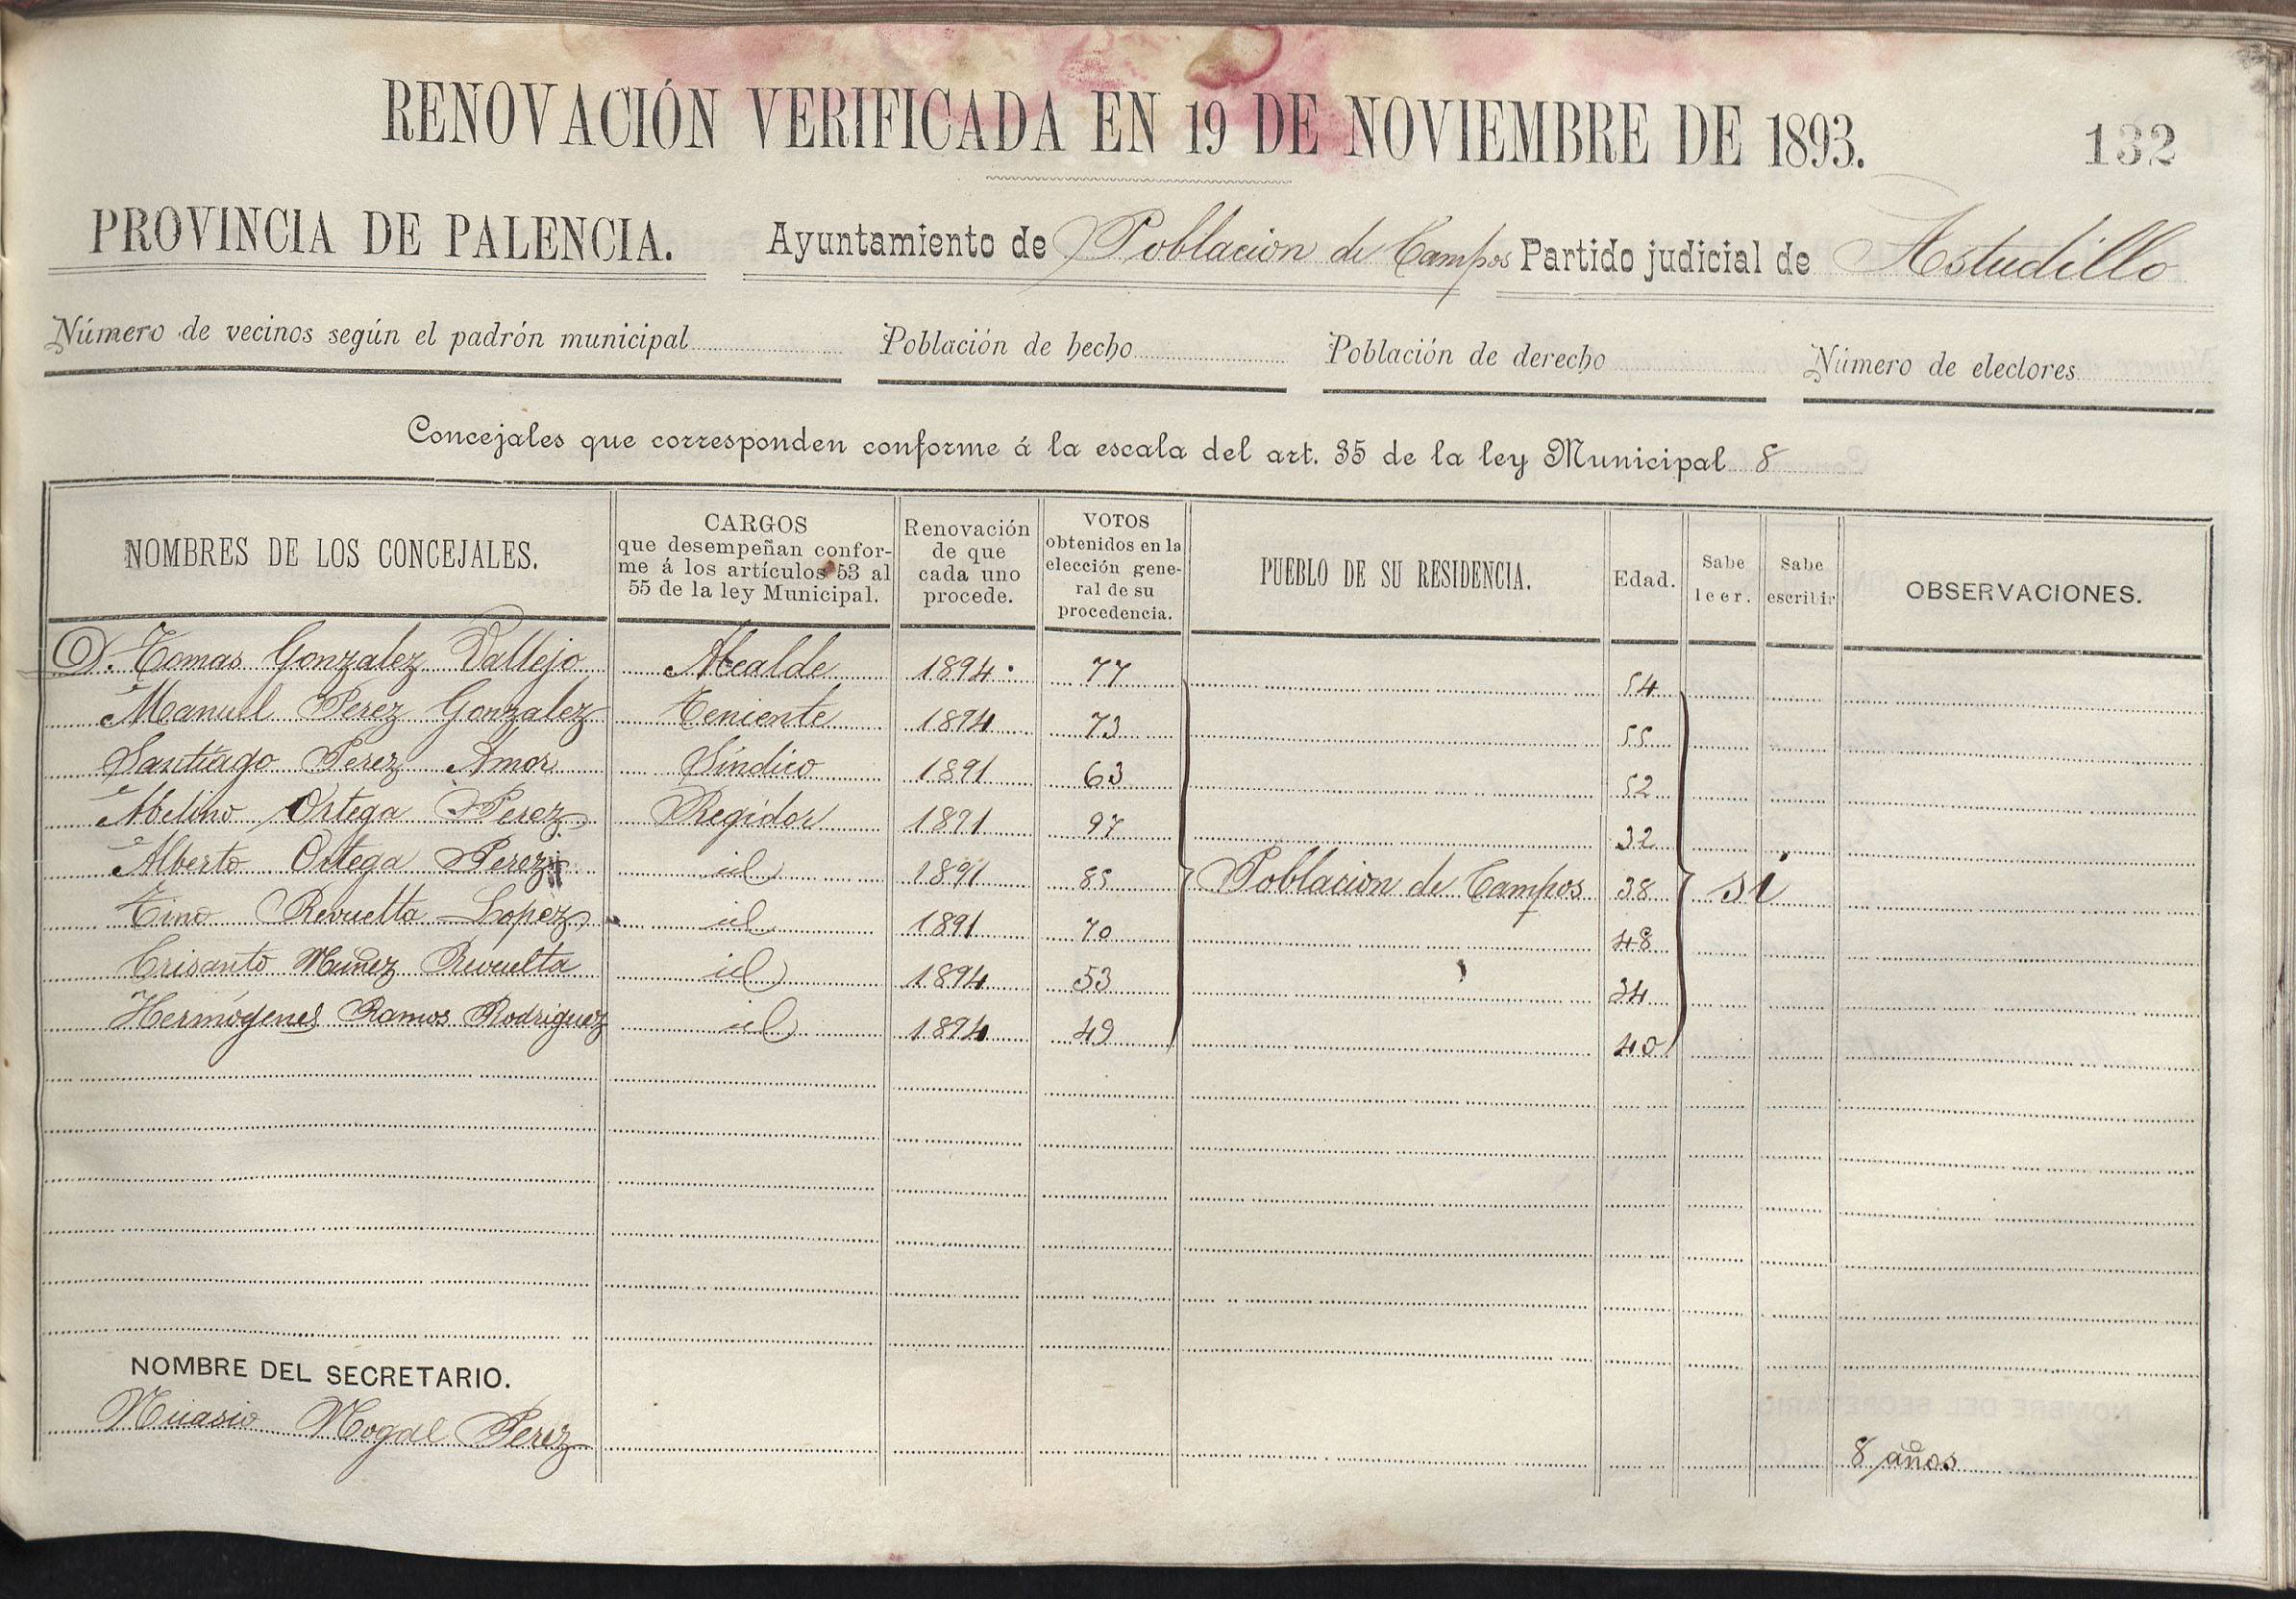 RENOVACIÓN VERIFICADA EN 19 DE NOVIEMBRE DE 1893. 132
PROVINCIA DE PALENCIA. Ayuntamiento de Poblacion de Campos Partido judicial de Astudillo
Número de vecinos según el padrón municipal Población de hecho Población de derecho Número de electores
Concejales que corresponden conforme á la escala del art. 35 de la ley Municipal 8
NOMBRES DE LOS CONCEJALES.
CARGOS
que desempeñan confor-
me á los artículos 53 al
55 de la ley Municipal.
Renovación
de que
cada uno
procede.
VOTOS
obtenidos en la
elección gene-
ral de su
procedencia.
PUEBLO DE SU RESIDENCIA.
Edad.
Sabe
leer.
Sabe
escribir
OBSERVACIONES.
D. Tomas Gonzalez Vallejo Alcalde 1894. 77 54
Manuel Perez Gonzalez Teniente 1894 73 55
Santiago Perez Amor Síndico 1891 63 52
Ortega Perez Regidor 1891 97 32
Alberto Ortega Perez id 1891 85 Poblacion de Campos 38 si
Tino Revuelta Lopez id 1891 70 48
Crisanto Muñez Revuelta id 1894 53 34
Hermógenes Ramos Rodriguez id 1894 49 40
NOMBRE DEL SECRETARIO.
Nicasio Nogal Perez 8 años